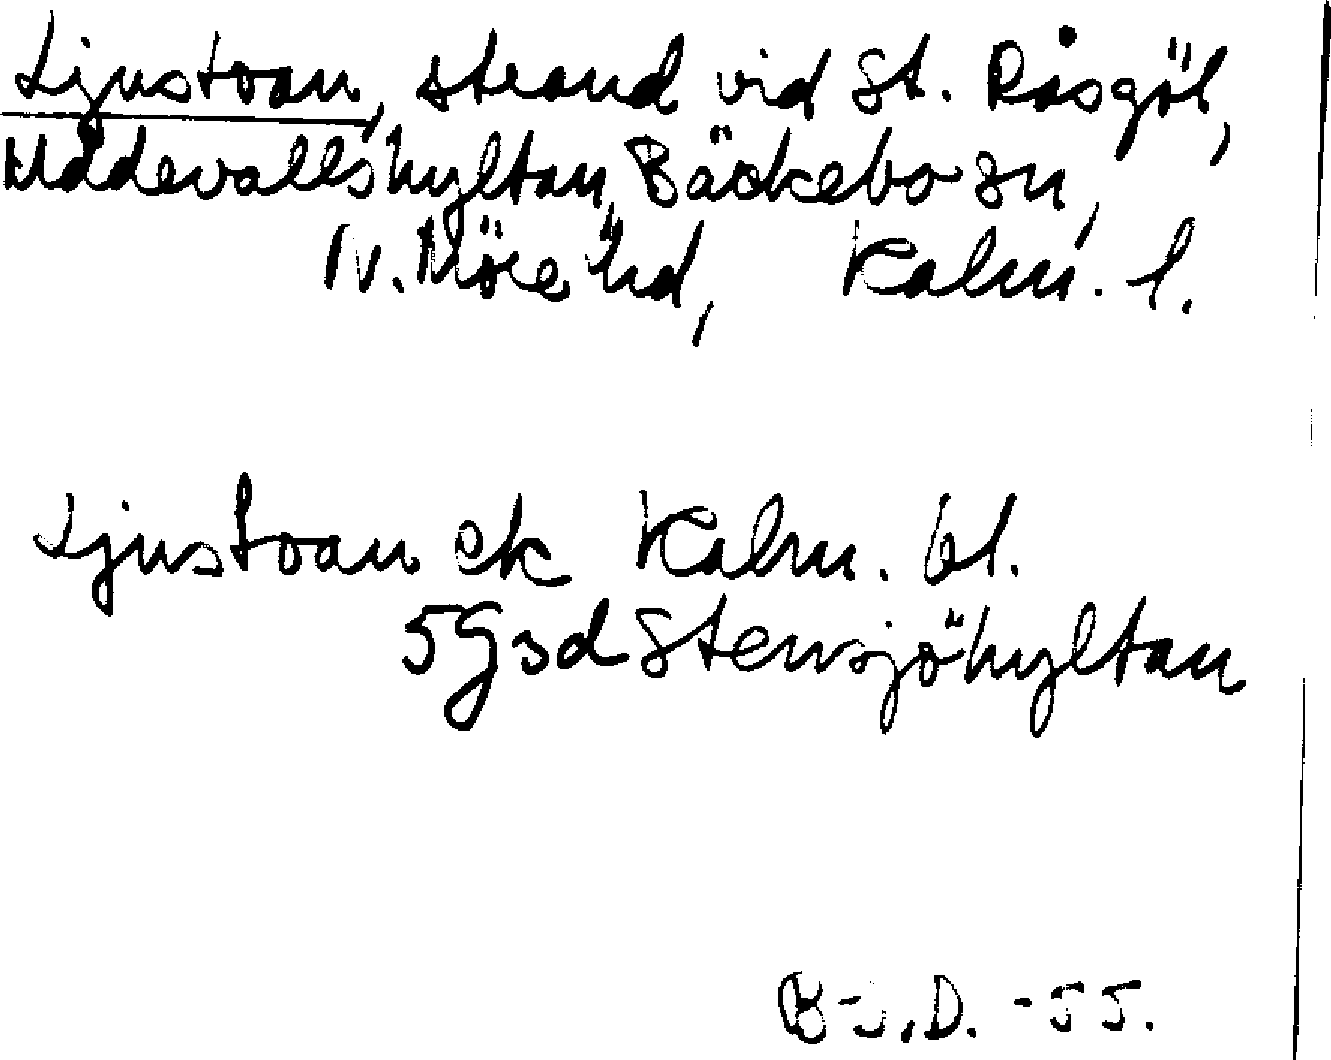 Ljustoan, strand vid St. Råsgöl,
Uddevallshyltan, Bäckebo sn,
N. Möre hd, Kalm. l.
Ljustoan ek Kalm. bl.
5Gsd Stensjöhyltan
B-J.D. -55.